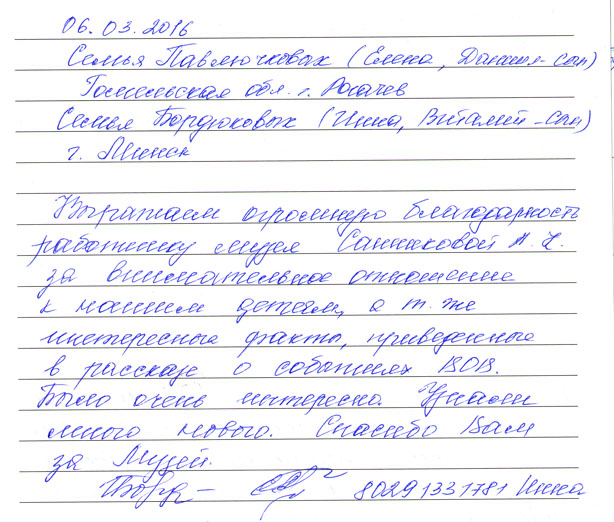 06.03.2016
Семья Павлючковых (Елена, Даниил-сын)
Гомельская обл. г. Рогачев
Семья Бордюковых (Инна, Виталий-сын)
г. Минск
Выражаем огромную благодарность
работнику музея Санниковой А.
за внимательное отношение
к нашим детям, а т.же
интересные факты, приведенные
в рассказе о событиях ВОВ.
Было очень интересно. Узнали
много нового. Спасибо Вам
за Музей.
80291331781 Инна